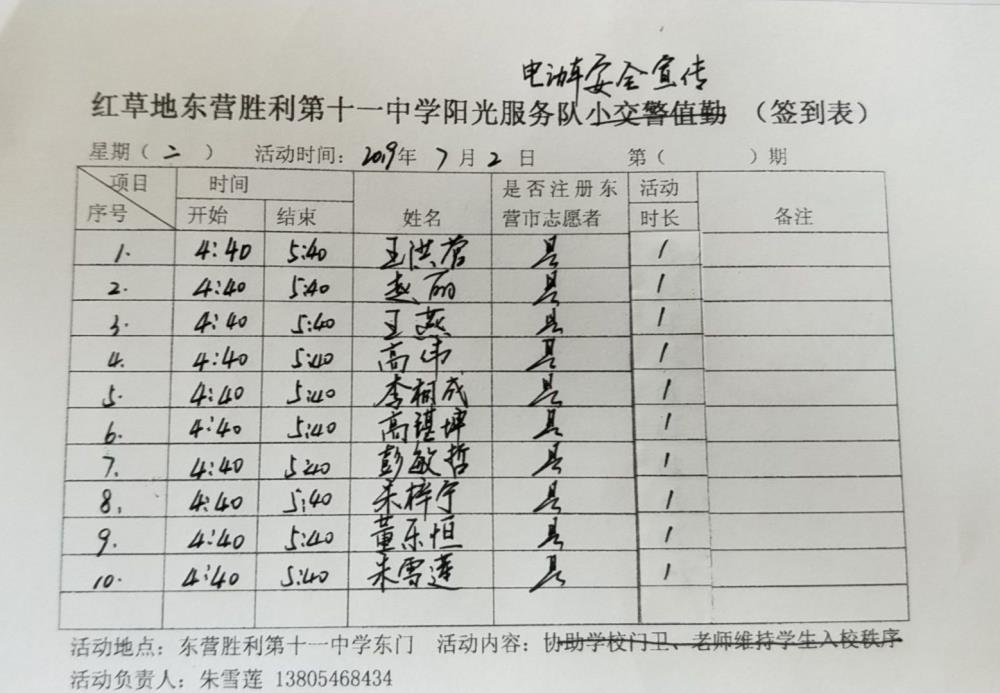 电动车安全宣传
红草地东营胜利第十一中学阳光服务队小交警值勤 （签到表）
星期（ 二 ） 活动时间：2019年 7 月 2 日 第（ ）期
项目 时间 是否注册东 活动
序号 开始 结束 姓名 营市志愿者 时长 备注
1. 4:40 5:40 王洪营 是 1
2. 4:40 5:40 赵丽 是 1
3. 4:40 5:40 王燕 是 1
4. 4:40 5:40 高伟 是 1
5. 4:40 5:40 李桐成 是 1
6. 4:40 5:40 高琪坤 是 1
7. 4:40 5:40 彭敏哲 是 1
8. 4:40 5:40 朱梓宁 是 1
9. 4:40 5:40 董乐恒 是 1
10. 4:40 5:40 朱雪莲 是 1
活动地点：东营胜利第十一中学东门 活动内容：协助学校门卫、老师维持学生入校秩序
活动负责人：朱雪莲 13805468434